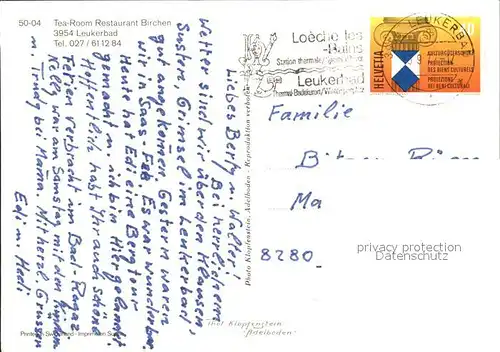 50-04 Tea-Room Restaurant Birchen
3954 Leukerbad
Tel. 027 / 61 12 84
Loèche-les
-Bains
Station thermale
Leukerbad
Thermal-Badekurort/Wintersportplatz
LEUKERBAD
HELVETIA
KULTURGÜTERSCHUTZ
PROTECTION
DES BIENS CULTURELS
PROTEZIONE
DEI BENI CULTURALI
Liebes Berty u. Walter!
Bei herrlichem
Wetter sind wir über den Klausen,
Susten, Grimsel in Leukerbad
gut angekommen. Gestern waren
wir in Saas-Fee. Es war wunderbar.
Heute hat Edi eine Bergtour
gemacht u. ich bin hier gelaust.
Hoffentlich habt Ihr auch schöne
Ferien verbracht im Bad-Ragaz
Kelly war am Samstag mit den Kindern
u. Trudy bei Mama. Mit herzl. Grüssen
Edi u. Hedi
Photo Klopfenstein, Adelboden - Reproduktion verboten
Familie
Ma
8280
privacy protection
Datenschutz
Klopfenstein
Adelboden
Printed in Switzerland - Imprimé en Suisse